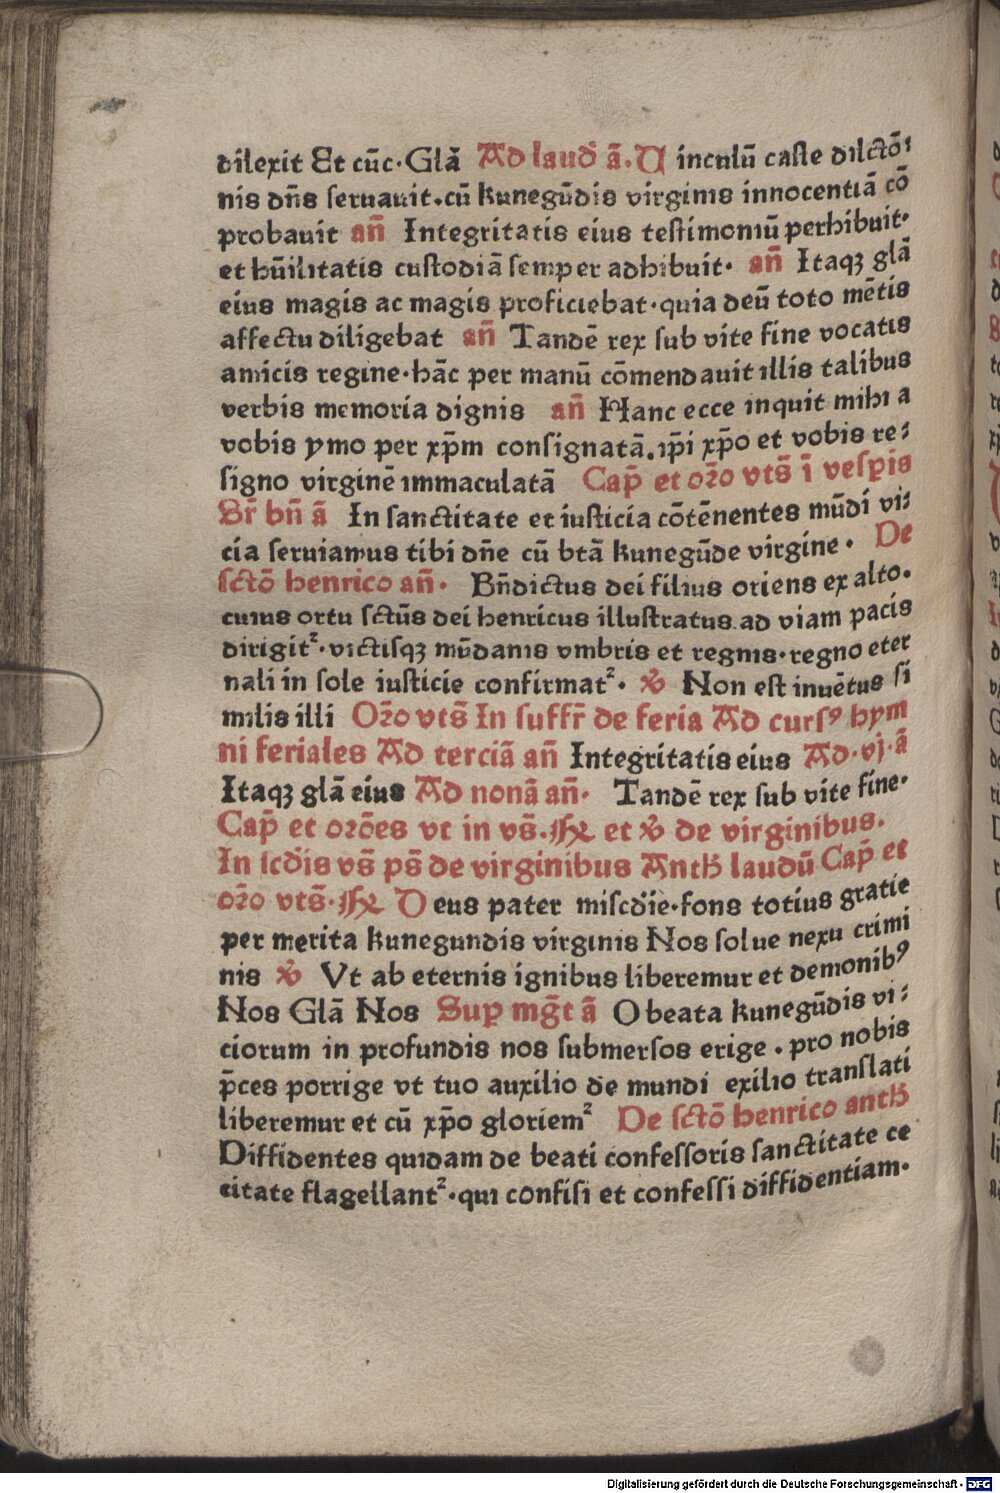 dilexit Et cūc·Glā Ad laud̄ ā. Vinculū caste dilctō⸗
nis dn̄s seruauit.cū kunegūdis virginis innocentiā cō
probauit an̄ Integritatis eius testimoniū perhibuit·
et hūilitatis custodiā semper adhibuit· an̄ Itaqꝫ glā
eius magis ac magis proficiebat·quia deū toto mētis
affectu diligebat an̄ Tandē rex sub vite fine vocatis
amicis regine·hāc per manū cōmendauit illis talibus
verbis memoria dignis an̄ Hanc ecce inquit mihi a
vobis ymo per xp̄m consignatā.ip̄i xp̄o et vobis re⸗
signo virginē immaculatā Cap̄ et or̄o vts̄ ī vesp̄is
Br̄ bn̄ ā In sanctitate et iusticia cōtēnentes mūdi vi⸗
cia seruiamus tibi dn̄e cū btā kunegūde virgine· De
sctō henrico an̄· Bn̄dictus dei filius oriens ex alto.
cuius ortu sctūs dei henricus illustratus.ad viam pacis
dirigitᷣ·victisqꝫ mūdanis vmbris et regnis·regno eter
nali in sole iusticie confirmatᷣ· ℣ Non est inuētus si
milis illi Or̄o vts̄ In suffr̄ de feria Ad cursꝰ hym
ni feriales Ad terciā an̄ Integritatis eius Ad·vj·ā
Itaqꝫ glā eius Ad nonā an̄· Tandē rex sub vite fine·
Cap̄ et orōes vt in vs̄.℟ et ℣ de virginibus.
In scd̄is vs̄ ps̄ de virginibus Anth̄ laudū Cap̄ et
or̄o vts̄·℟ Deus pater miscd̄ie·fons totius gratie
per merita kunegundis virginis Nos solue nexu crimi
nis ℣ Vt ab eternis ignibus liberemur et demonibꝰ
Nos Glā Nos Sup mḡt ā O beata kunegūdis vi⸗
ciorum in profundis nos submersos erige.pro nobis
p̄ces porrige vt tuo auxilio de mundi exilio translati
liberemur et cū xp̄o gloriemᷣ De sctō henrico anth̄
Diffidentes quidam de beati confessoris sanctitate ce
citate flagellantᷣ·qui confisi et confessi diffidentiam.
Digitalisierung gefördert durch die Deutsche Forschungsgemeinschaft - DFG